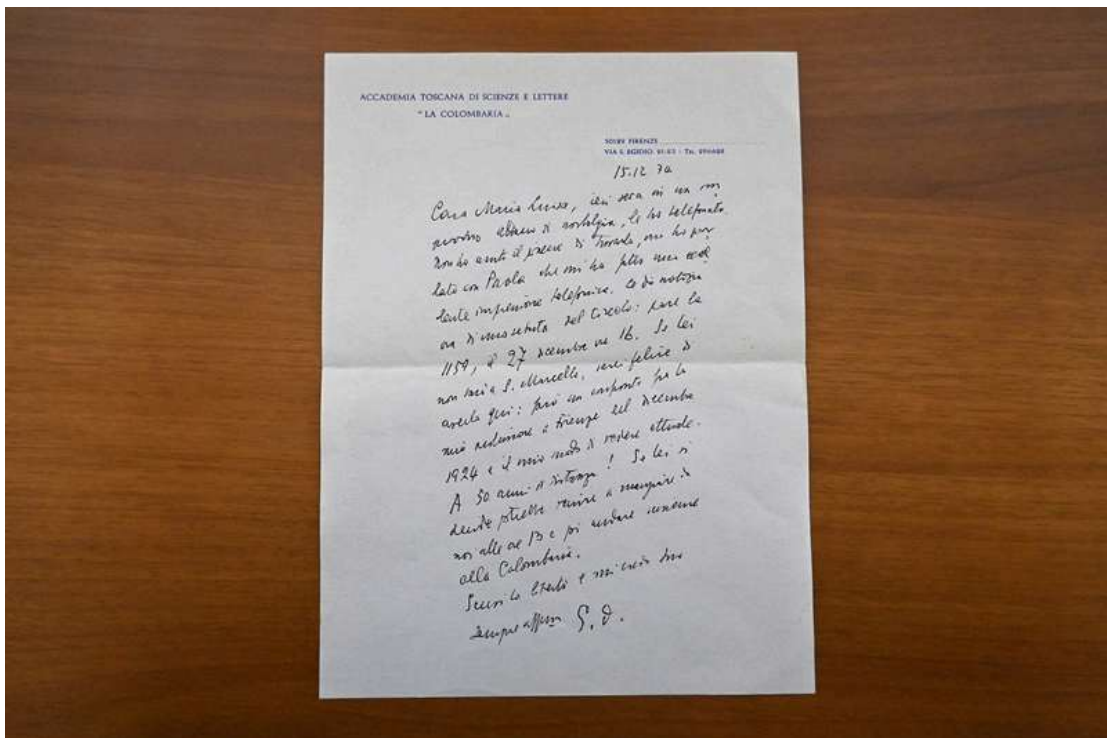 ACCADEMIA TOSCANA DI SCIENZE E LETTERE
"LA COLOMBARIA„
50122 FIRENZE
VIA S. EGIDIO, - TEL.
15.12 74
Cara Maria Luisa, ieri sera in un mio
nuovo di nostalgia, le ho telefonato.
Non ho avuto il piacere di trovarla, ma ho par
lato con Paola che mi ha fatto una eccel
lente impressione telefonica. Le do notizia
ora di una seduta del Circolo: pare la
115ª, il 27 dicembre ore 16. Se Lei
non sarà a S. Marcello, sarei felice di
averla qui: farò un confronto fra la
mia a Firenze nel dicembre
1924 e il mio modo di vedere attuale.
A 50 anni di distanza! Se Lei si
decide potrebbe venire a mangiare da
noi alle ore 13 e poi andare insieme
alla Colombaria.
Scusi la libertà e mi creda suo
sempre affmo G. D.